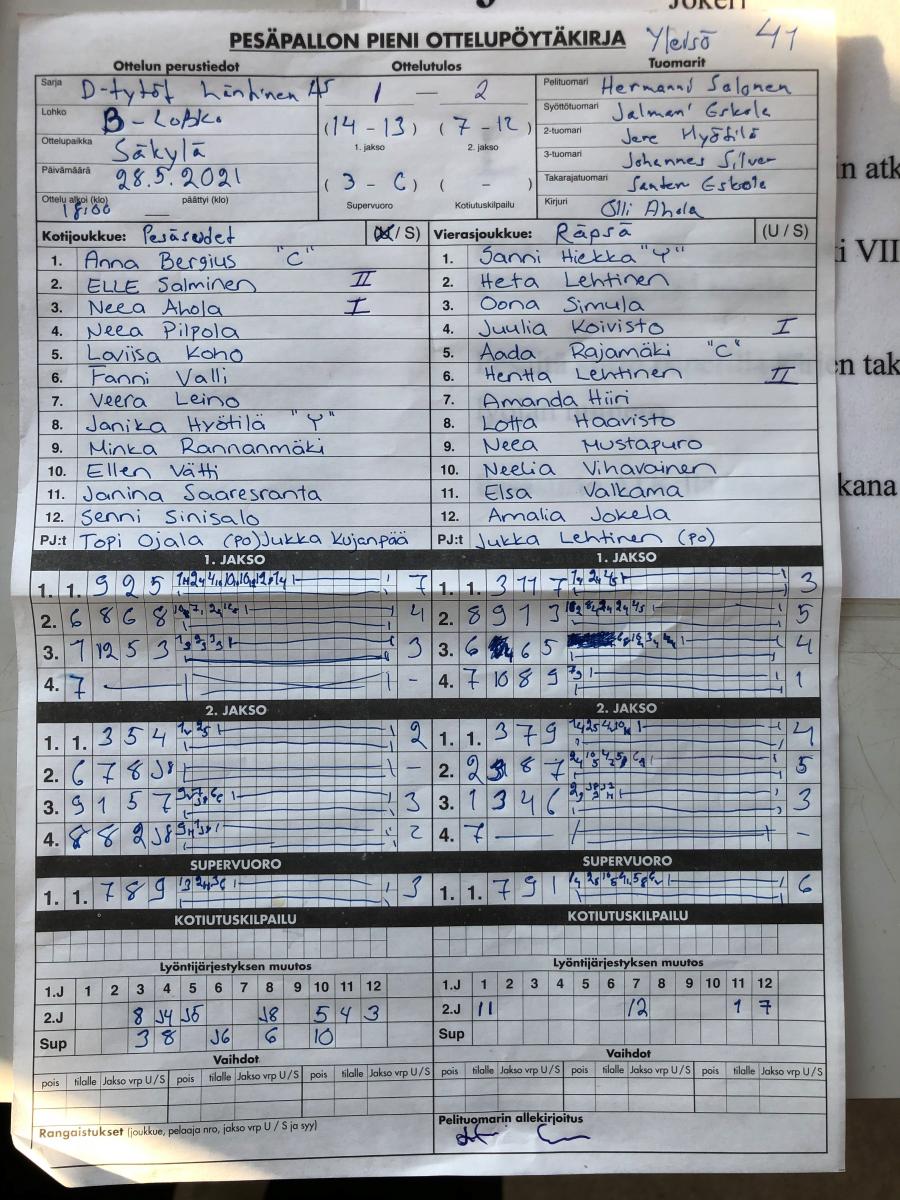 Jokeri
PESÄPALLON PIENI OTTELUPÖYTÄKIRJA Yleisö 41
Ottelun perustiedot Ottelutulos Tuomarit
Sarja D-tytöt Läntinen AS 1 — 2 Pelituomari Hermanni Salonen
Lohko B-Lohko (14 - 13) (7 - 12) Syöttötuomari Jalmari Eskola
1. jakso 2. jakso
Ottelupaikka Säkylä 2-tuomari Jere Hyötilä
3-tuomari Johannes Silver
Päivämäärä 28.5.2021 (3 - 6) ( - ) Takarajatuomari Santeri Eskola
Ottelu alkoi (klo) 18:00 päättyi (klo) — Supervuoro Kotiutuskilpailu Kirjuri Olli Ahola
Kotijoukkue: Pesäsudet (U / S) Vierasjoukkue: Räpsä (U / S)
1. Anna Bergius "C" 1. Sanni Hiekka "Y"
2. ELLE Salminen II 2. Heta Lehtinen
3. Neea Ahola I 3. Oona Simula
4. Neea Pilpola 4. Juulia Koivisto I
5. Loviisa Koho 5. Aada Rajamäki "C"
6. Fanni Valli 6. Hentta Lehtinen II
7. Veera Leino 7. Amanda Hiiri
8. Janika Hyötilä "Y" 8. Lotta Haavisto
9. Minka Rannanmäki 9. Neea Mustapuro
10. Ellen Vätti 10. Neelia Vihavainen
11. Janina Saaresranta 11. Elsa Valkama
12. Senni Sinisalo 12. Amalia Jokela
PJ:t Topi Ojala (po) Jukka Kujanpää PJ:t Jukka Lehtinen (po)
1. JAKSO 1. JAKSO
1. 1. 9 2 5 7 1. 1. 3 11 7 3
2. 6 8 6 8 4 2. 8 9 1 3 5
3. 7 12 5 3 3 3. 6 4 6 5 4
4. 7 — - 4. 7 10 8 9 1
2. JAKSO 2. JAKSO
1. 1. 3 5 4 2 1. 1. 3 7 9 4
2. 6 7 8 J8 - 2. 2 8 7 5
3. 9 1 5 7 3 3. 1 3 4 6 3
4. 8 8 2 J8 2 4. 7 — -
SUPERVUORO SUPERVUORO
1. 1. 7 8 9 3 1. 1. 7 9 1 6
KOTIUTUSKILPAILU KOTIUTUSKILPAILU
Lyöntijärjestyksen muutos Lyöntijärjestyksen muutos
1.J 1 2 3 4 5 6 7 8 9 10 11 12 1.J 1 2 3 4 5 6 7 8 9 10 11 12
2.J 8 J4 J5 J8 5 4 3 2.J 11 12 1 7
Sup 3 8 J6 6 10 Sup
Vaihdot Vaihdot
pois tilalle Jakso vrp U / S pois tilalle Jakso vrp U / S pois tilalle Jakso vrp U / S pois tilalle Jakso vrp U / S pois tilalle Jakso vrp U / S pois tilalle Jakso vrp U / S
Rangaistukset (joukkue, pelaaja nro, jakso vrp U / S ja syy) Pelituomarin allekirjoitus
in atk
i VII
en tak
kana